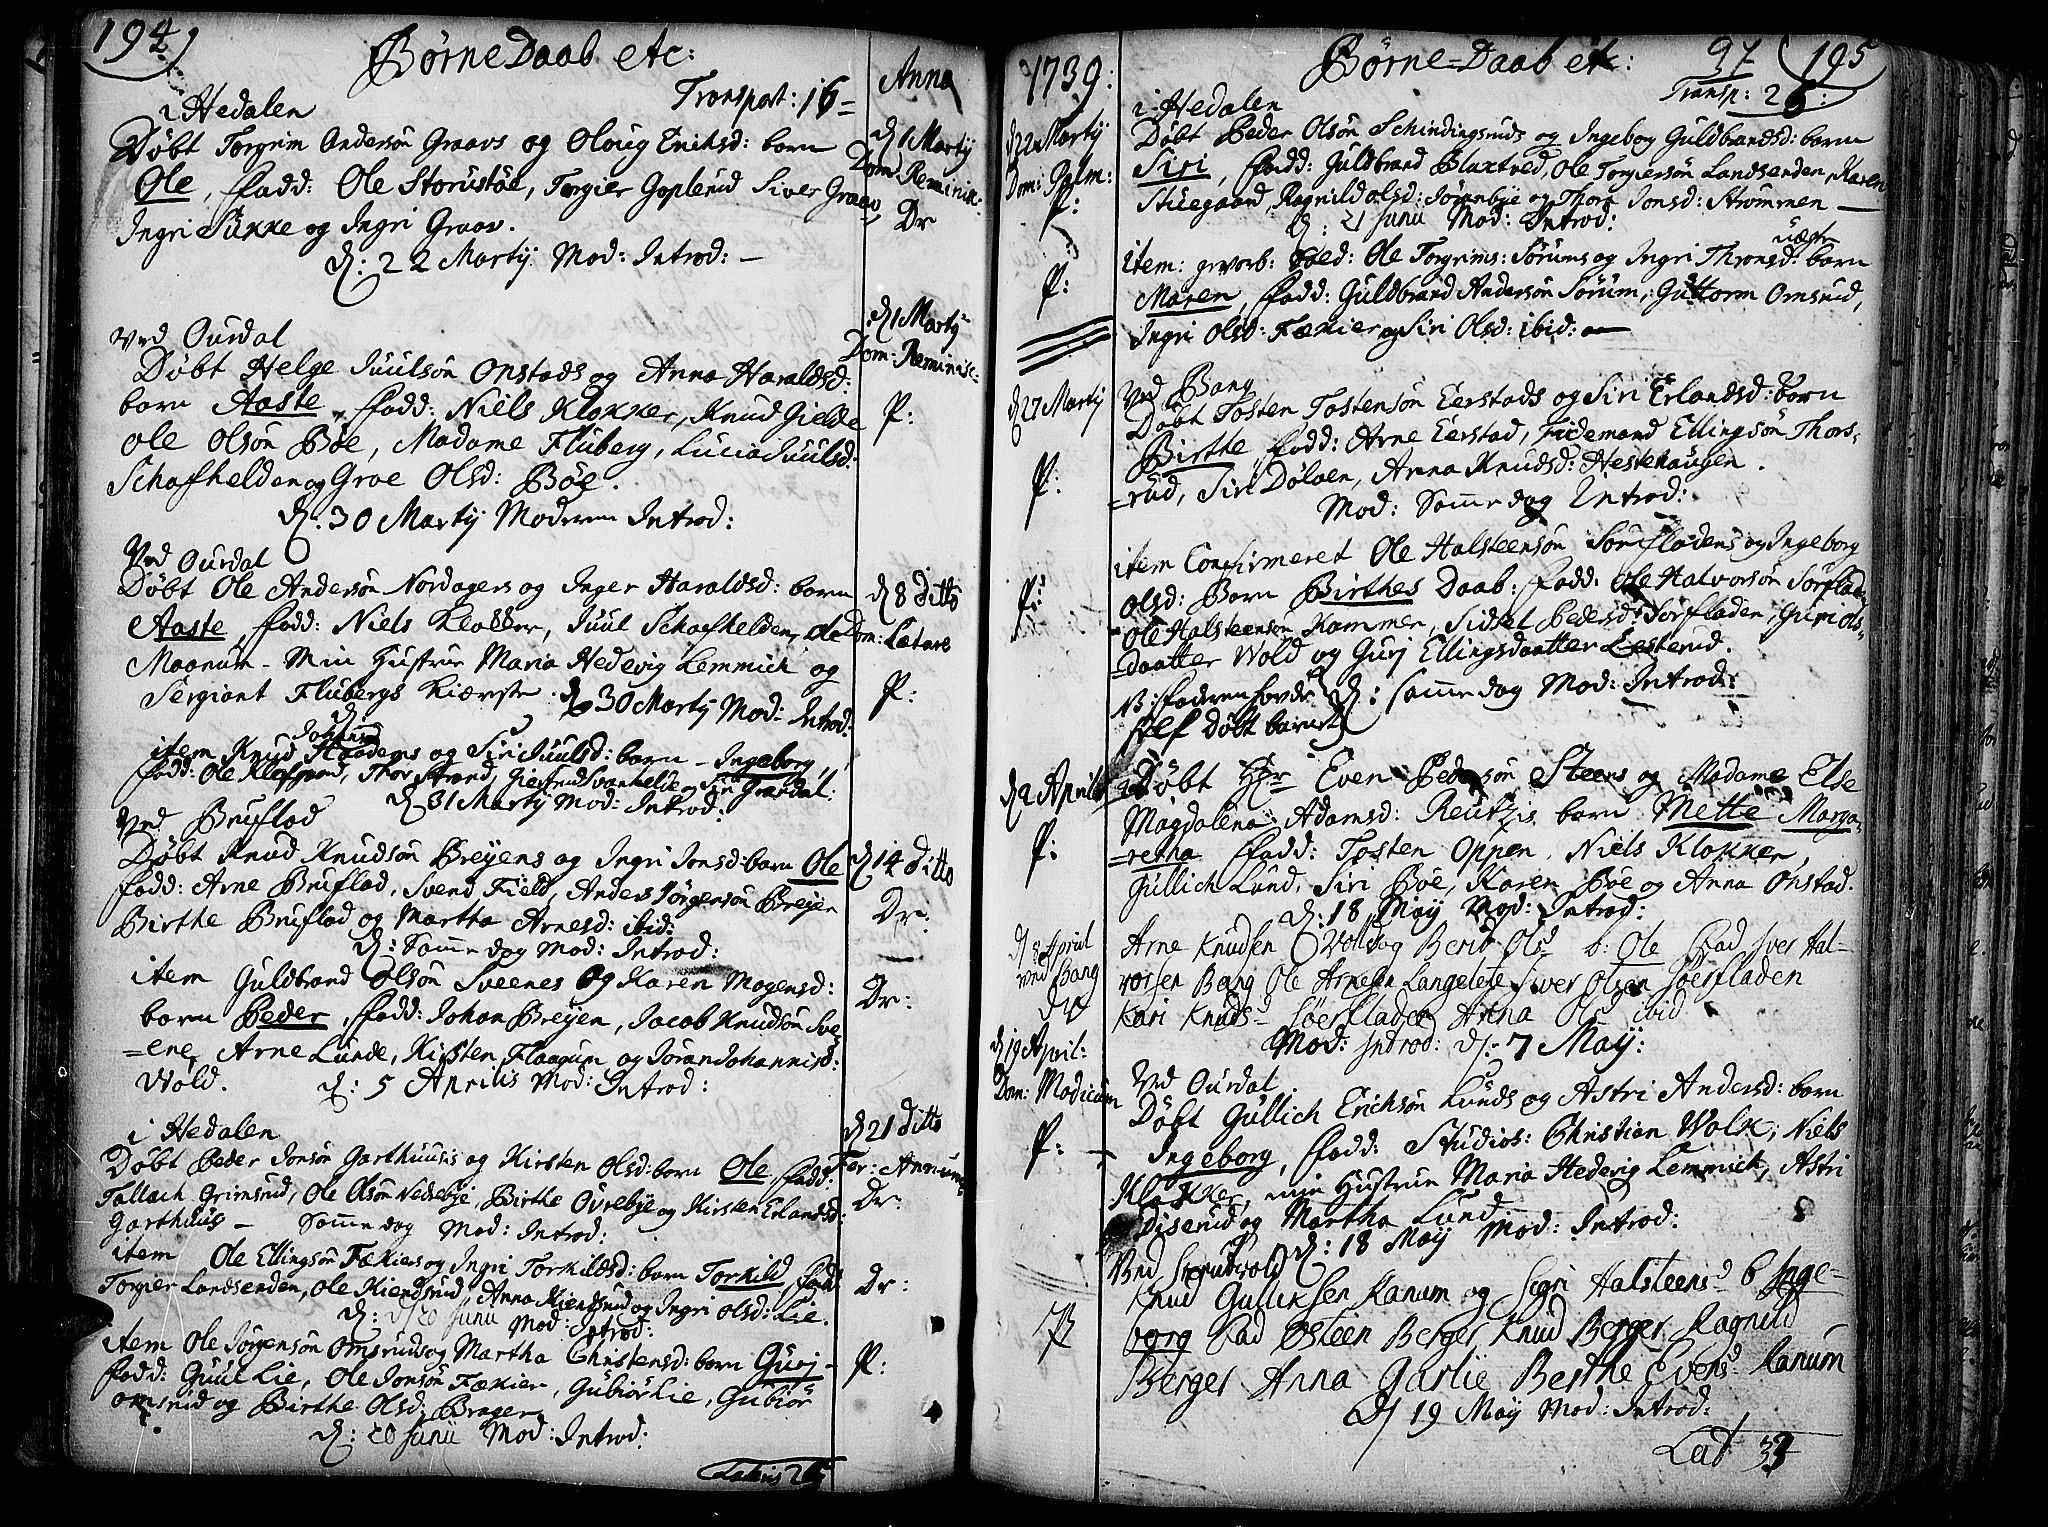 194
Børne Daab etc:
Transport: 16
Anno
i Hedalen
Døbt Torgrim Andersøn Graavs og Oloug Eriksd: barn
Ole, fadd: Ole Storustøe, Torgier Goplerud Siver Graav,
Ingri Sukke og Ingri Graav.
d: 22 Martij Mod: Introd:
d 1 Martij
Dom: Reminisc:
Dr
Ved Ourdal
Døbt Helge Juulsøn Onstads og Anna Haraldsd:
barn Aaste, fadd: Niels Klokker, Knud Gielde
Ole Olsøn Bøe, Madame Fluberg, Lucia Juulsd:
Schafhelden og Groe Olsd: Bøe.
d: 30 Martij Moderen Introd:
d 1 Martij
Dom: Reminisc:
P:
Ved Ourdal
Døbt Ole Andersøn Nordagers og Inger Haraldsd: barn
Aaste, fadd: Niels Klokker, Juul Schafhelden, Ole
Maanum - Min Hustrue Maria Hedevig Lemmich og
Sergiant Flubergs Kiærste. d 30 Martij Mod: Introd:
d 8 Ditto
Dom: Lætare
P:
item Knud Haadems og Siri Juulsd: barn - Ingeborg,
fadd: Ole Klefgaard, Thor Strand, Giertrud Svanhelde og Siri Gravdal:
d 31 Martij Mod: Introd:
Ved Bruflad
Døbt Knud Knudsøn Breyens og Ingri Jonsd: barn Ole
fadd: Arne Bruflad, Svend Field, Anders Jørgensøn Breyen
Birthe Bruflad og Martha Arnesd: ibid:
d: Samme dag Mod: Introd:
d 14 Ditto
Dr:
item Guldbrand Olsøn Sveenes og Karen Mogensd:
barn Peder, fadd: Johan Breyen, Jacob Knudsøn Sve
=ene, Arne Lunde, Kirsten Flaagum og Joran Johannisd:
Wold. d: 5 Aprilis Mod: Introd:
Dr:
i Hedalen
Døbt Peder Jonsøn Garthuusis og Kirsten Olsd: barn Ole, fadd:
Tollach Grimsrud, Ole Olsøn Nedrebye, Birthe Øvrebye og Kirsten Erlandsd:
Garthuus - Samme dag Mod: Introd:
d 21 Ditto
Fer: Annunc:
Dr:
item Ole Ellingsøn Fækiers og Ingri Torkildsd: barn Torkild, fadd:
Torgier Landsenden, Ole Kiendsrud, Anna Kiendsrud og Ingri Olsd: Lie.
d: 20 Junii Mod: Introd:
Dr:
item Ole Jørgensøn Omsruds og Martha Christensd: barn Gurj -
fadd: Guul Lie, Ole Jonsøn Fækier, Gubiør Lie, Gubiør
Omsrud og Birthe Olsd: Brager
d: 20 Junii Mod: Introd:
P:
Lateris 26
1739:
Børne=Daab etc:
97
195
Transp: 26:
i Hedalen
d 22 Martij
Dom: Palm:
P:
Døbt Peder Olsøn Schindingsruds og Ingebog Guldbrandsd: barn
Siri, fadd: Guldbrand Bluxtved, Ole Torgiersøn Landsenden, Karen
Stuegaard, Ragnild Olsd: Joranbye og Thora Jonsd: Strømmen -
d: 21 Junii Mod: Introd:
P:
uægte
item: Ole Torgrims: Sørums og Ingri Thronsd: barn
Maren, fadd: Guldbrand Andersøn Sørum, Guttorm Omsrud,
Ingri Olsd: Fækier og Siri Olsd: ibid:
Ved Bang
d 27 Martij
P:
Døbt Tosten Tostensøn Eerstads og Siri Erlandsd: barn
Birthe, fadd: Arne Eerstad, Tidemand Ellingsøn Thors-
=rud, Siri Døloen, Anna Knudsd: Hestehaugen.
Mod: Samme dag Introd:
P:
item Confirmeret Ole Halsteensøn Sørfladens og Ingeborg
Olsd: Barn Birthes Daab: fadd: Ole Halvorsøn Sørfladen
Ole Halsteensøn Kammen, Sidsel Pedersd: Sørfladen, Guri Ols-
=daatter Wold og Gurj Ellingsdaatter Leesterud.
NB: faderen hovde self døbt barnet d: Samme dag Mod: Introd:
d 2 Aprilis
P:
Døbt Hr Even Pedersøn Steens og Madame Else
Magdalena Adamsd: Reutzis barn Mette Marga-
=retha fadd: Tosten Oppen, Niels Klokker,
Gullich Lund, Siri Bøe, Karen Bøe og Anna Onstad.
d: 18 Maij Mod: Introd:
d 8 April
ved Bang
Arne Knudsen Volds og Berit Olsd b: Ole Fad Iver Hal-
vorsen Bang Ole Arnesen Langelete Siver Olsen Søerfladen
Kari Knudsd Søerfladen Anna Olsd ibid
Mod: Introd: d: 7 Maij:
d 19 April:
Dom: Modicum
P:
Ved Ourdal
Døbt Gullich Erichsøn Lunds og Astri Andersd: barn
Ingeborg, fadd: Studios: Christian Wolk, Niels
Klokker, min Hustrue Maria Hedevig Lemmich, Astri
Diserud og Martha Lund
d: 18 Maij Mod: Introd:
Knud Gulliksen Ranum og Sigri Halsteensd b Inge-
borg Fad Østeen Berger Knud Berger Ragnild
Berger Anna Garlie Berthe Evensd Ranum
d 19 Maij Mod: Introd:
Lat 33